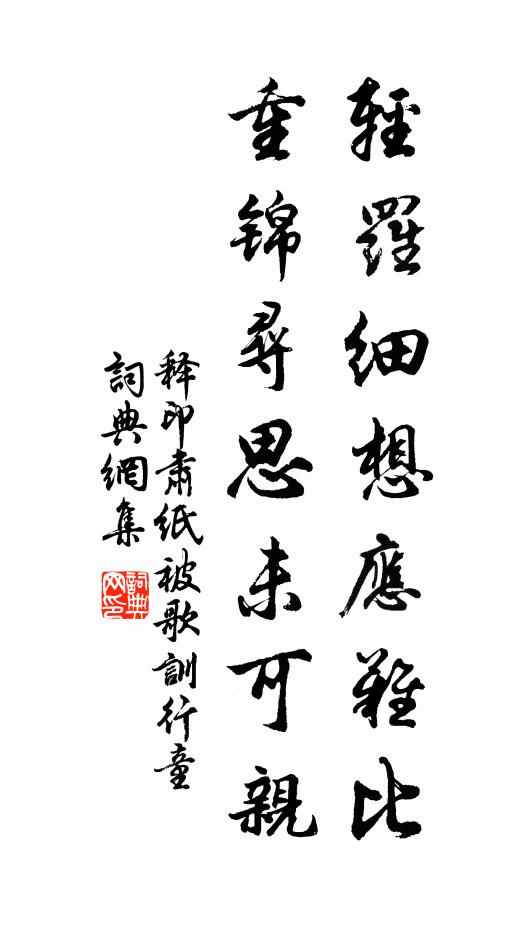 輕羅細想應難比
重錦尋思未可親
释印肅紙被歌訓行童
詞典網集
詞典网印